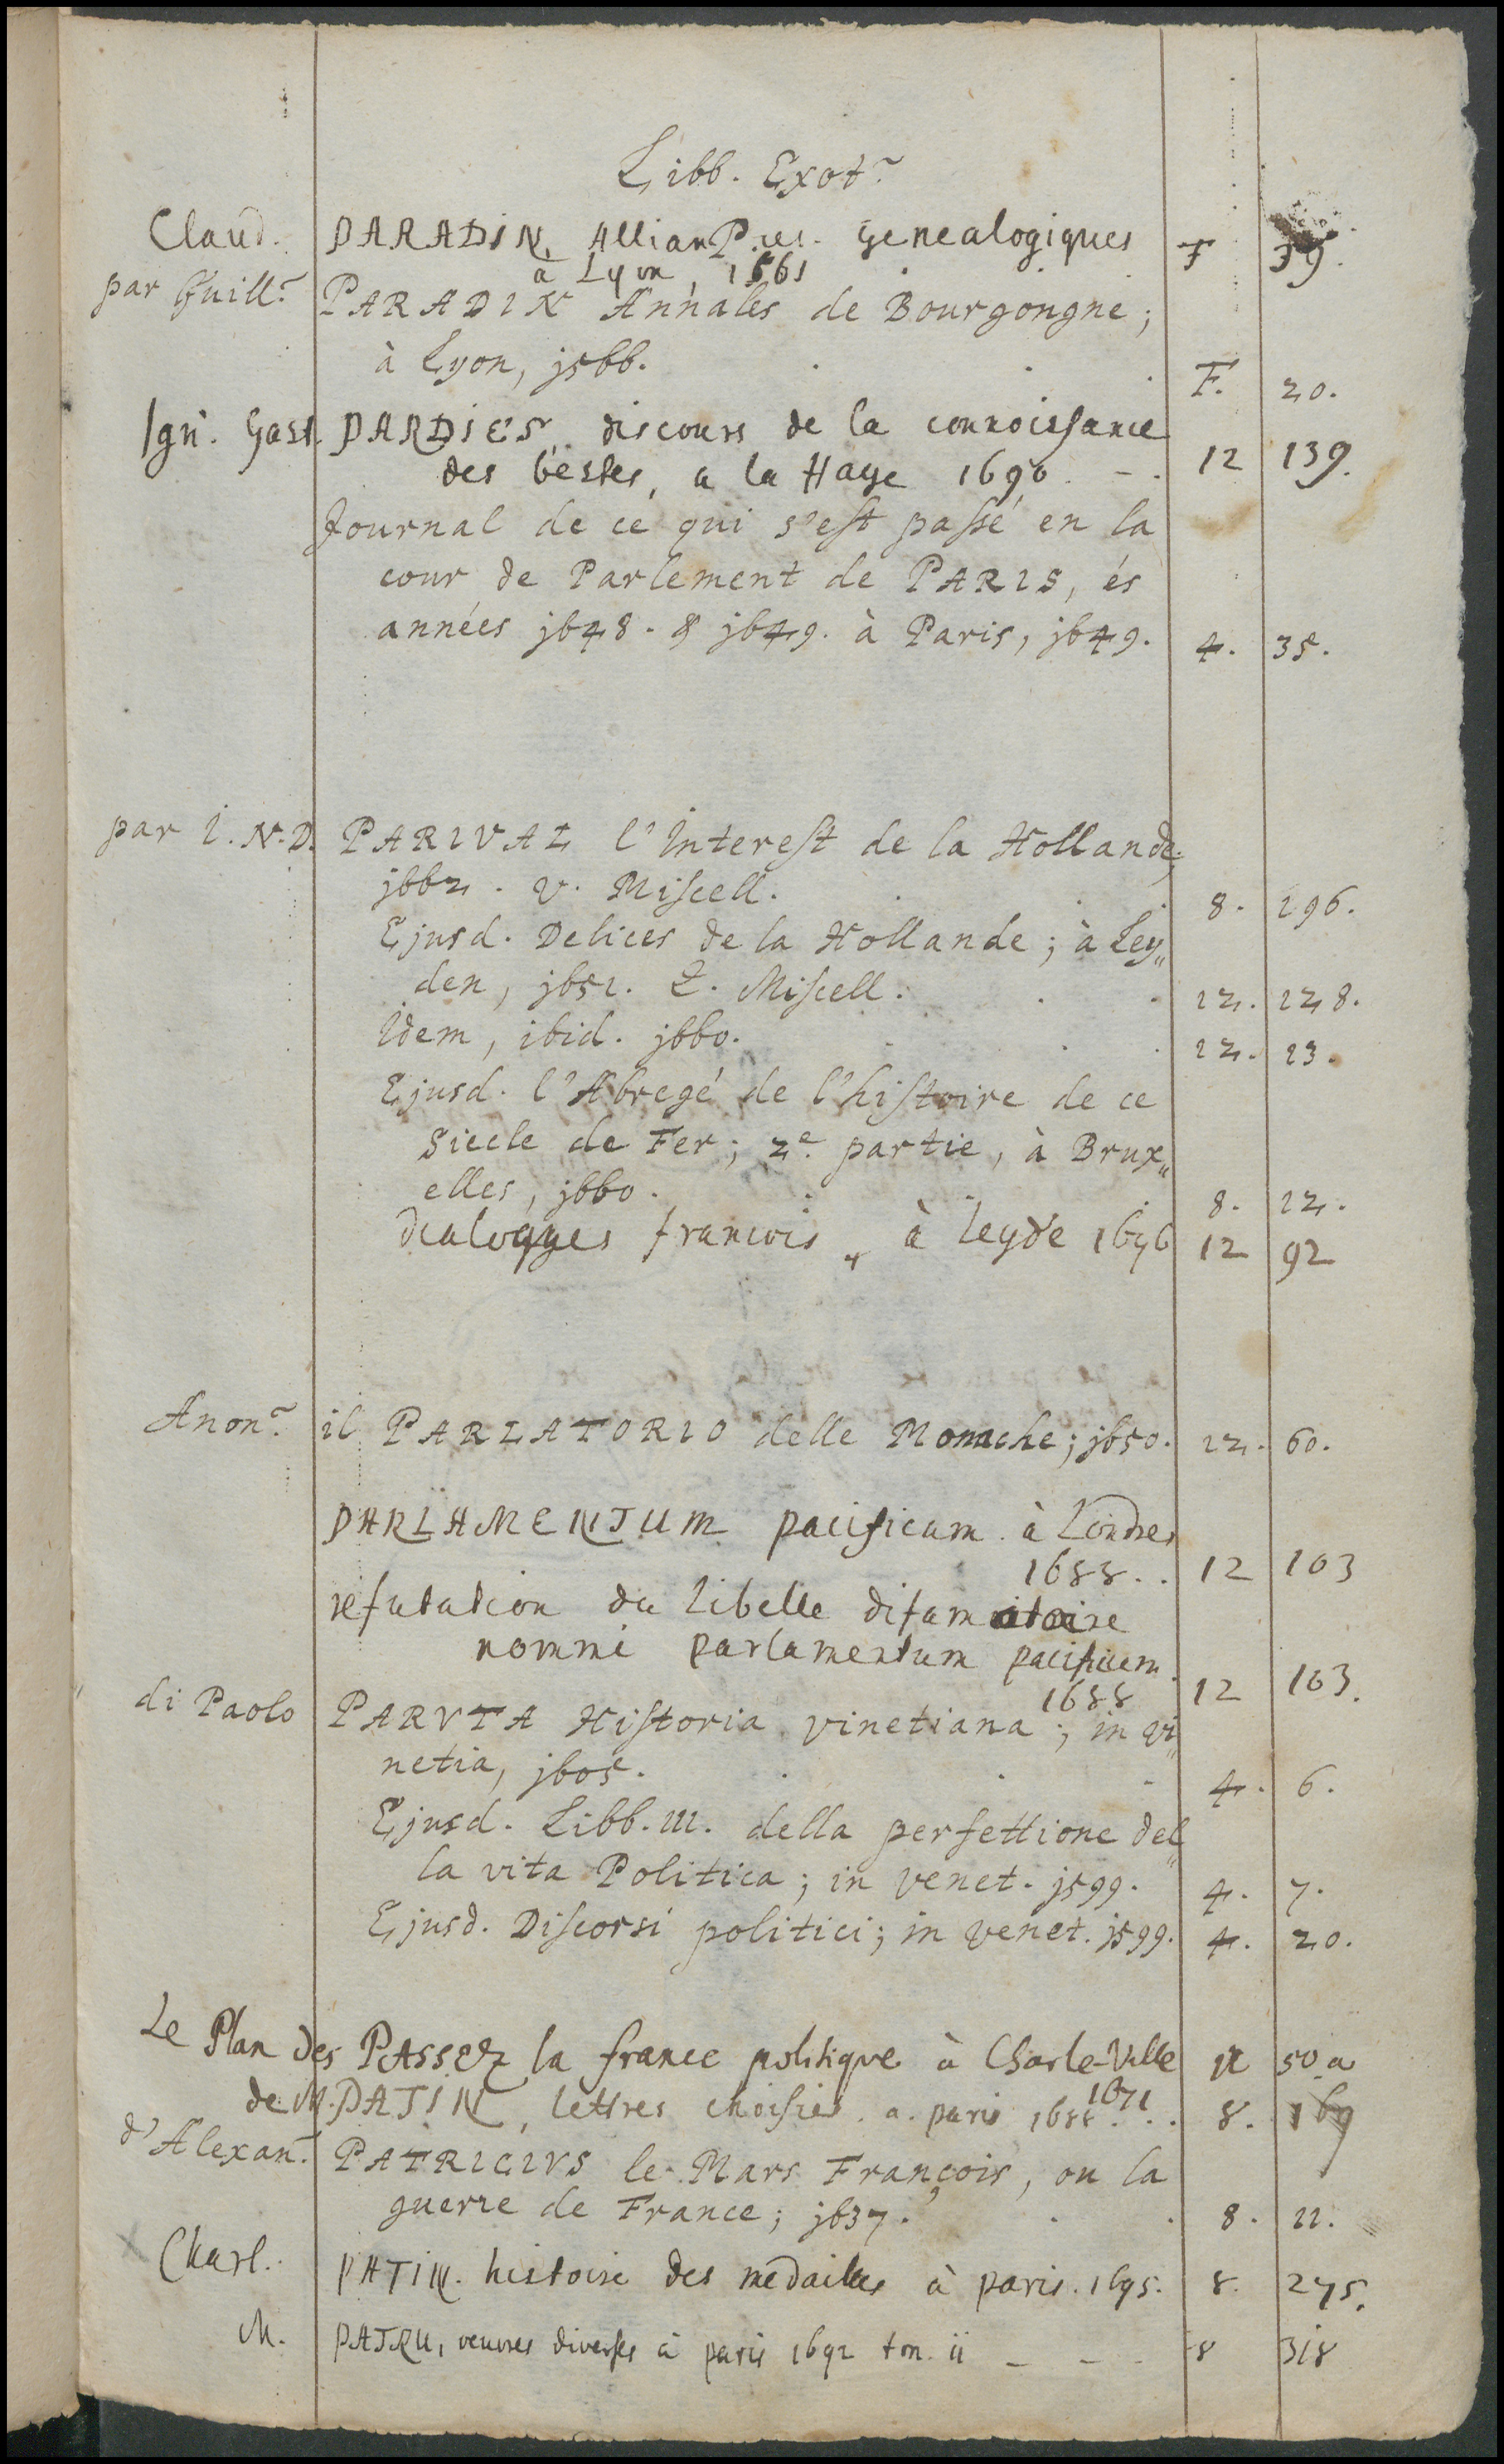 Libb. Exot.
Claud. PARADIN, AllianPces. Genealogiques F 39.
à Lyon, 1561
par Guill. PARADIN Annales de Bourgongne;
à Lyon, j566. F. 20.
Ign. Gast. PARDIES, discours de la connoissance
des bestes, a la Haye 1690. 12 139.
Journal de ce qui s'est passé en la
cour de Parlement de PARIS, és
années j648. & j649. à Paris, j649. 4. 35.
par I. N. D. PARIVAL l'Interest de la Hollande;
j662. v. Miscell. 8. 196.
Ejusd. Delices de la Hollande; à Ley„
den, j651. L. Miscell. 12. 128.
Idem, ibid. j660. 12. 13.
Ejusd. l'Abregé de l'histoire de ce
Siecle de Fer; 2e. partie, à Brux„
elles, j660. 8. 12.
dialogues francois, à Leyde 1656 12 92
Anon. il PARLATORIO delle Monache; j650. 12. 60.
PARLAMENTUM pacificum à Londres
1688.. 12 103
refutation du libelle difamatoire
nommé parlamentum pacificum.
1688 12 103.
di Paolo PARVTA Historia vinetiana; in vi„
netia, j605. 4. 6.
Ejusd. Libb. III. della perfettione del„
la vita Politica; in venet. j599. 4. 7.
Ejusd. Discorsi politici; in venet. j599. 4. 20.
Le Plan des PASSEZ la france politique à Charle-Ville 12 50 a
1671
de M. PATIN, lettres choisies. a. paris 1688... 8. 169
d'Alexan. PATRICIVS le Mars François, ou la
guerre de France; j637. 8. 11.
Charl. PATIN. histoire des medailles à paris. 1695. 8. 275.
M. PATRU, oeuvres diverses à paris 1692 tom. ii 8 318